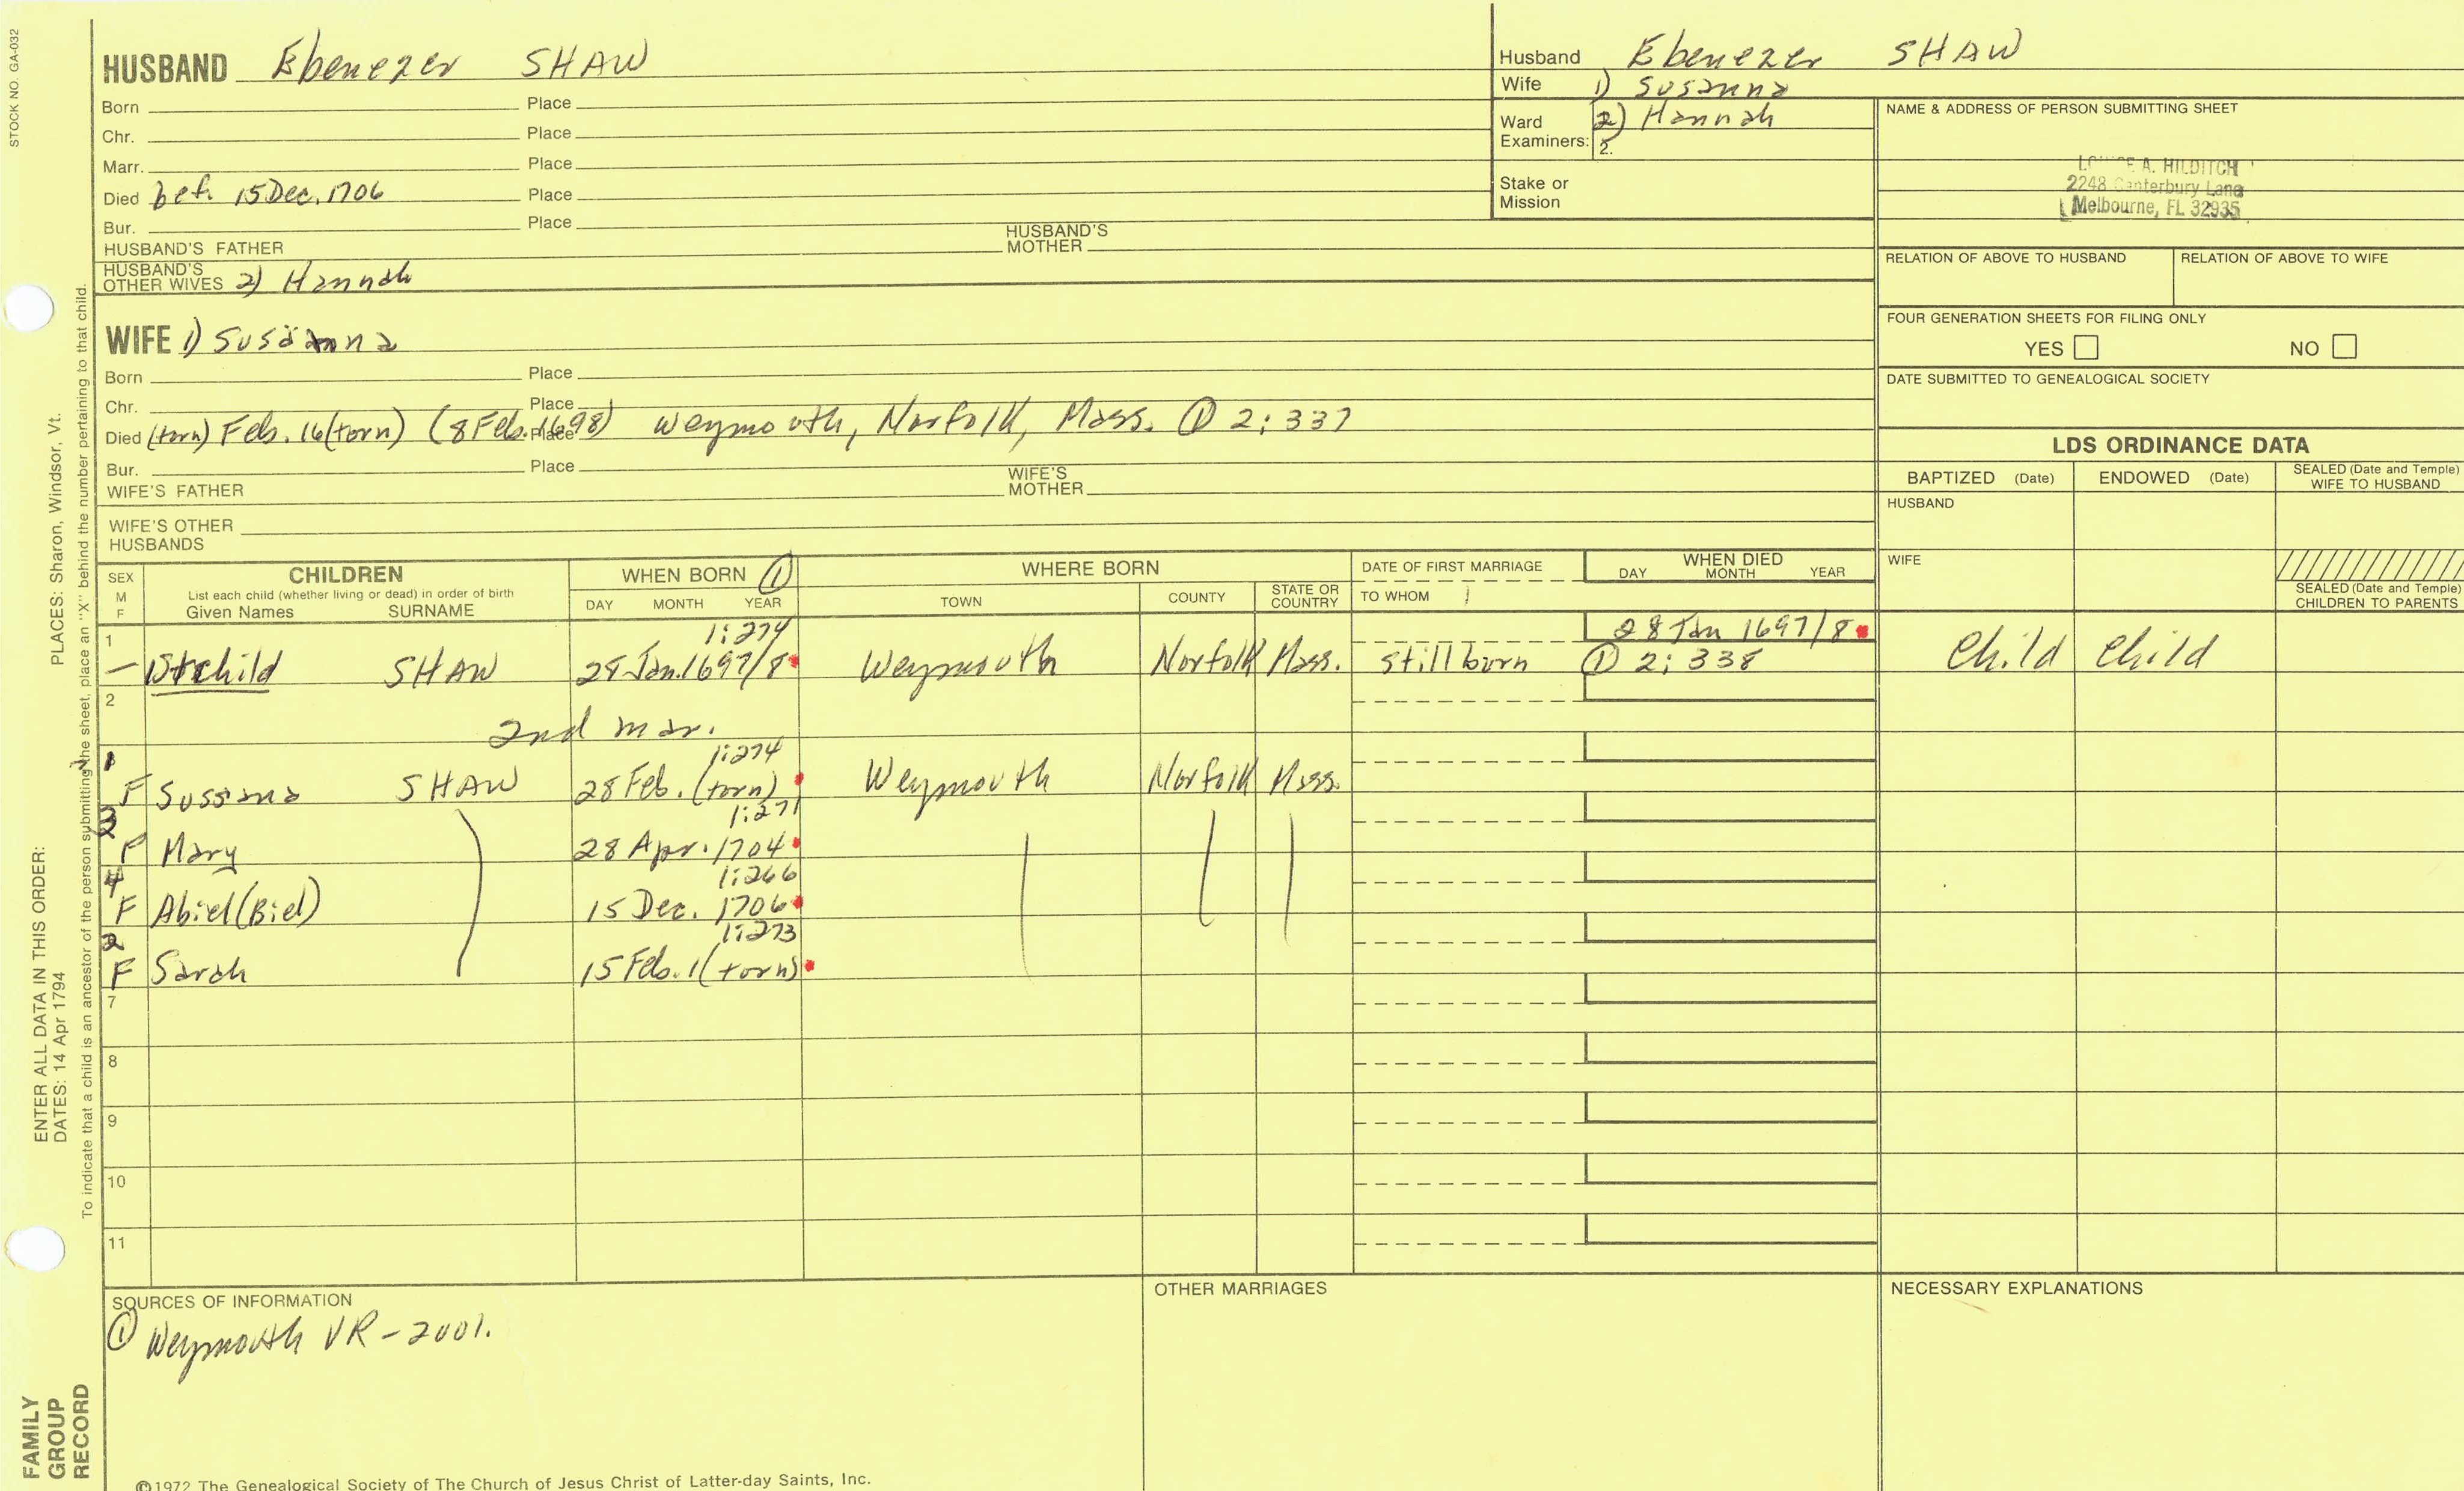 STOCK NO. GA-032
HUSBAND Ebenezer SHAW
Born Place
Chr. Place
Marr. Place
Died bef. 15 Dec. 1706 Place
Bur. Place
HUSBAND'S FATHER HUSBAND'S MOTHER
HUSBAND'S OTHER WIVES 2) Hannah
WIFE 1) Susanna
Born Place
Chr. Place
Died (torn) Feb. 16(torn) (8 Feb. 1698) Place Weymouth, Norfolk, Mass. ① 2:337
Bur. Place
WIFE'S FATHER WIFE'S MOTHER
WIFE'S OTHER HUSBANDS
Husband Ebenezer SHAW
Wife 1) Susanna
Ward 2) Hannah
Examiners: 2.
Stake or Mission
NAME & ADDRESS OF PERSON SUBMITTING SHEET
A. HILDITCH
2248 Canterbury Lane
Melbourne, FL 32935
RELATION OF ABOVE TO HUSBAND RELATION OF ABOVE TO WIFE
FOUR GENERATION SHEETS FOR FILING ONLY
YES NO
DATE SUBMITTED TO GENEALOGICAL SOCIETY
LDS ORDINANCE DATA
BAPTIZED (Date) ENDOWED (Date) SEALED (Date and Temple) WIFE TO HUSBAND
HUSBAND
WIFE
SEALED (Date and Temple) CHILDREN TO PARENTS
SEX M F CHILDREN WHEN BORN ① WHERE BORN DATE OF FIRST MARRIAGE WHEN DIED
List each child (whether living or dead) in order of birth
Given Names SURNAME DAY MONTH YEAR TOWN COUNTY STATE OR COUNTRY TO WHOM DAY MONTH YEAR
1 1:274 28 Jan 1697/8
– child SHAW 28 Jan. 1697/8 Weymouth Norfolk Mass. stillborn ① 2:338 Child Child
2
2nd mar.
1 1:274
F Sussana SHAW 28 Feb. (torn) Weymouth Norfolk Mass.
3 1:271
F Mary 28 Apr. 1704
4 1:266
F Abiel (Biel) 15 Dec. 1706
2 1:273
F Sarah 15 Feb. 1(torn)
7
8
9
10
11
SOURCES OF INFORMATION
① Weymouth VR - 2001.
OTHER MARRIAGES
NECESSARY EXPLANATIONS
©1972 The Genealogical Society of The Church of Jesus Christ of Latter-day Saints, Inc.
FAMILY GROUP RECORD
ENTER ALL DATA IN THIS ORDER:
DATES: 14 Apr 1794 PLACES: Sharon, Windsor, Vt.
To indicate that a child is an ancestor of the person submitting the sheet, place an "X" behind the number pertaining to that child.